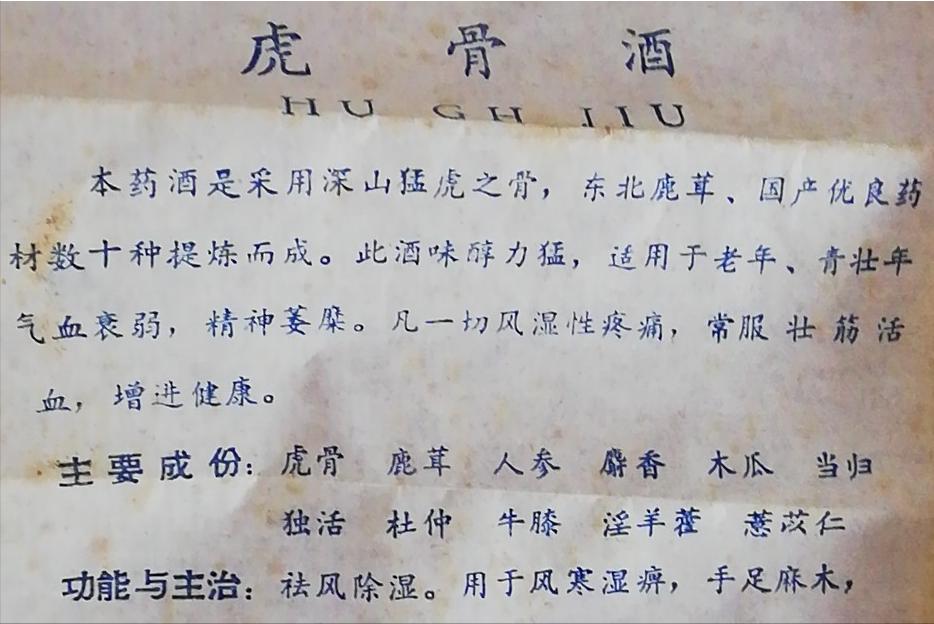 虎骨酒
HU GH JIU
本药酒是采用深山猛虎之骨，东北鹿茸、国产优良药
材数十种提炼而成。此酒味醇力猛，适用于老年、青壮年
气血衰弱，精神萎糜。凡一切风湿性疼痛，常服壮筋活
血，增进健康。
主要成份：虎骨 鹿茸 人参 麝香 木瓜 当归
独活 杜仲 牛膝 淫羊藿 薏苡仁
功能与主治：祛风除湿。用于风寒湿痹，手足麻木，